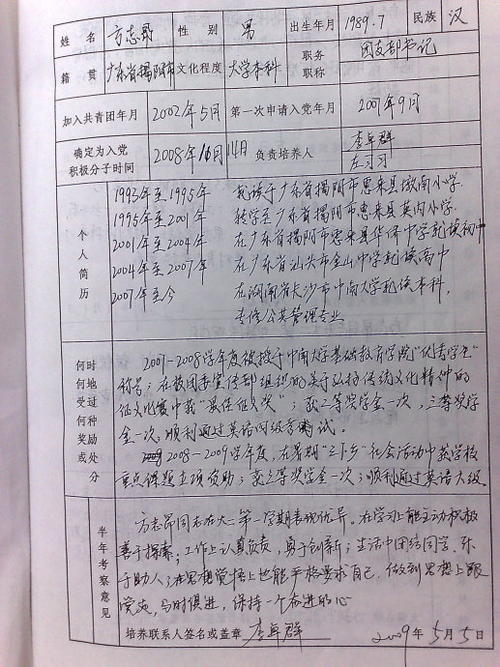 姓名 方志昂 性别 男 出生年月 1989.7 民族 汉
籍贯 广东省揭阳市 文化程度 大学本科 职务职称 团支部书记
加入共青团年月 2002年5月 第一次申请入党年月 2007年9月
确定为入党积极分子时间 2008年10月14日 负责培养人 李卓群
左习习
个人简历
1993年至1995年 就读于广东省揭阳市惠来县城南小学
1995年至2001年 转学至广东省揭阳市惠来县英内小学
2001年至2004年 在广东省揭阳市惠来县华侨中学就读初中
2004年至2007年 在广东省汕头市金山中学就读高中
2007年至今 在湖南省长沙市中南大学就读本科,
专修公共管理专业
何时何地受过何种奖励或处分
2007-2008学年度被授于中南大学基础教育学院“优秀学生”
称号;在校团委宣传部组织的关于弘扬传统文化精神的
征文比赛中获“最佳征文奖”;获二等奖学金一次,三等奖学
金一次;顺利通过英语四级考试。
2008-2009学年度,在暑期“三下乡”社会活动中获学校
重点课题立项资助;获三等奖学金一次;顺利通过英语六级
半年考察意见
方志昂同志在大二第一学期表现优异。在学习上能主动积极
善于探索;工作上认真负责,勇于创新;生活中团结同学、乐
于助人;在思想觉悟上也能严格要求自己,做到思想上跟
党走,与时俱进,保持一个奋进的心
培养联系人签名或盖章 李卓群 2009年5月5日